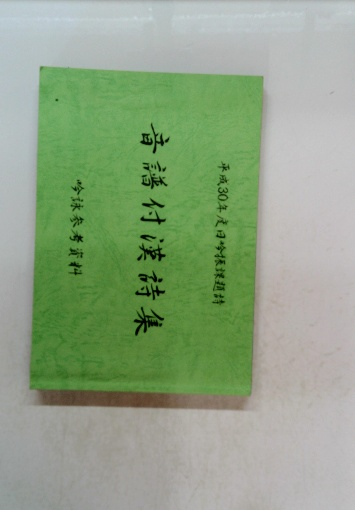 平成30年度日吟振課題詩
音譜付漢詩集
吟詠参考資料